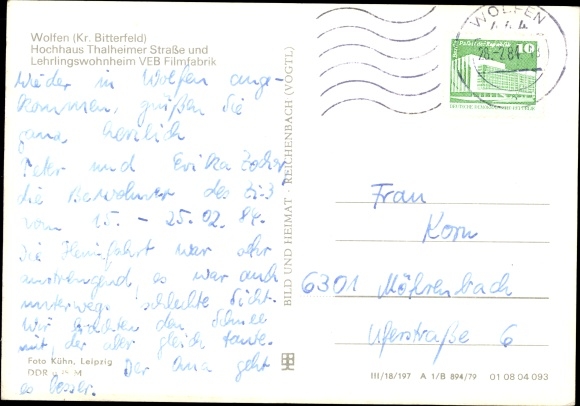 Wolfen (Kr. Bitterfeld)
Hochhaus Thalheimer Straße und
Lehrlingswohnheim VEB Filmfabrik
Wieder in Wolfen ange-
kommen, grüßen Sie
ganz herzlich
Peter und Erika
die Bewohner des
vom 15. - 25.02. 84.
Die Heimfahrt war sehr
anstrengend, es war auch
unterwegs schlechte Sicht.
Wir brachten den Schnee
mit, der aber gleich taute.
Der Oma geht
es besser.
Foto Kühn, Leipzig
DDR M
BILD UND HEIMAT · REICHENBACH (VOGTL)
WOLFEN
-2.84
10
Frau
Korn
6301 Möhrenbach
Uferstraße 6
III/18/197 A 1/B 894/79 01 08 04 093